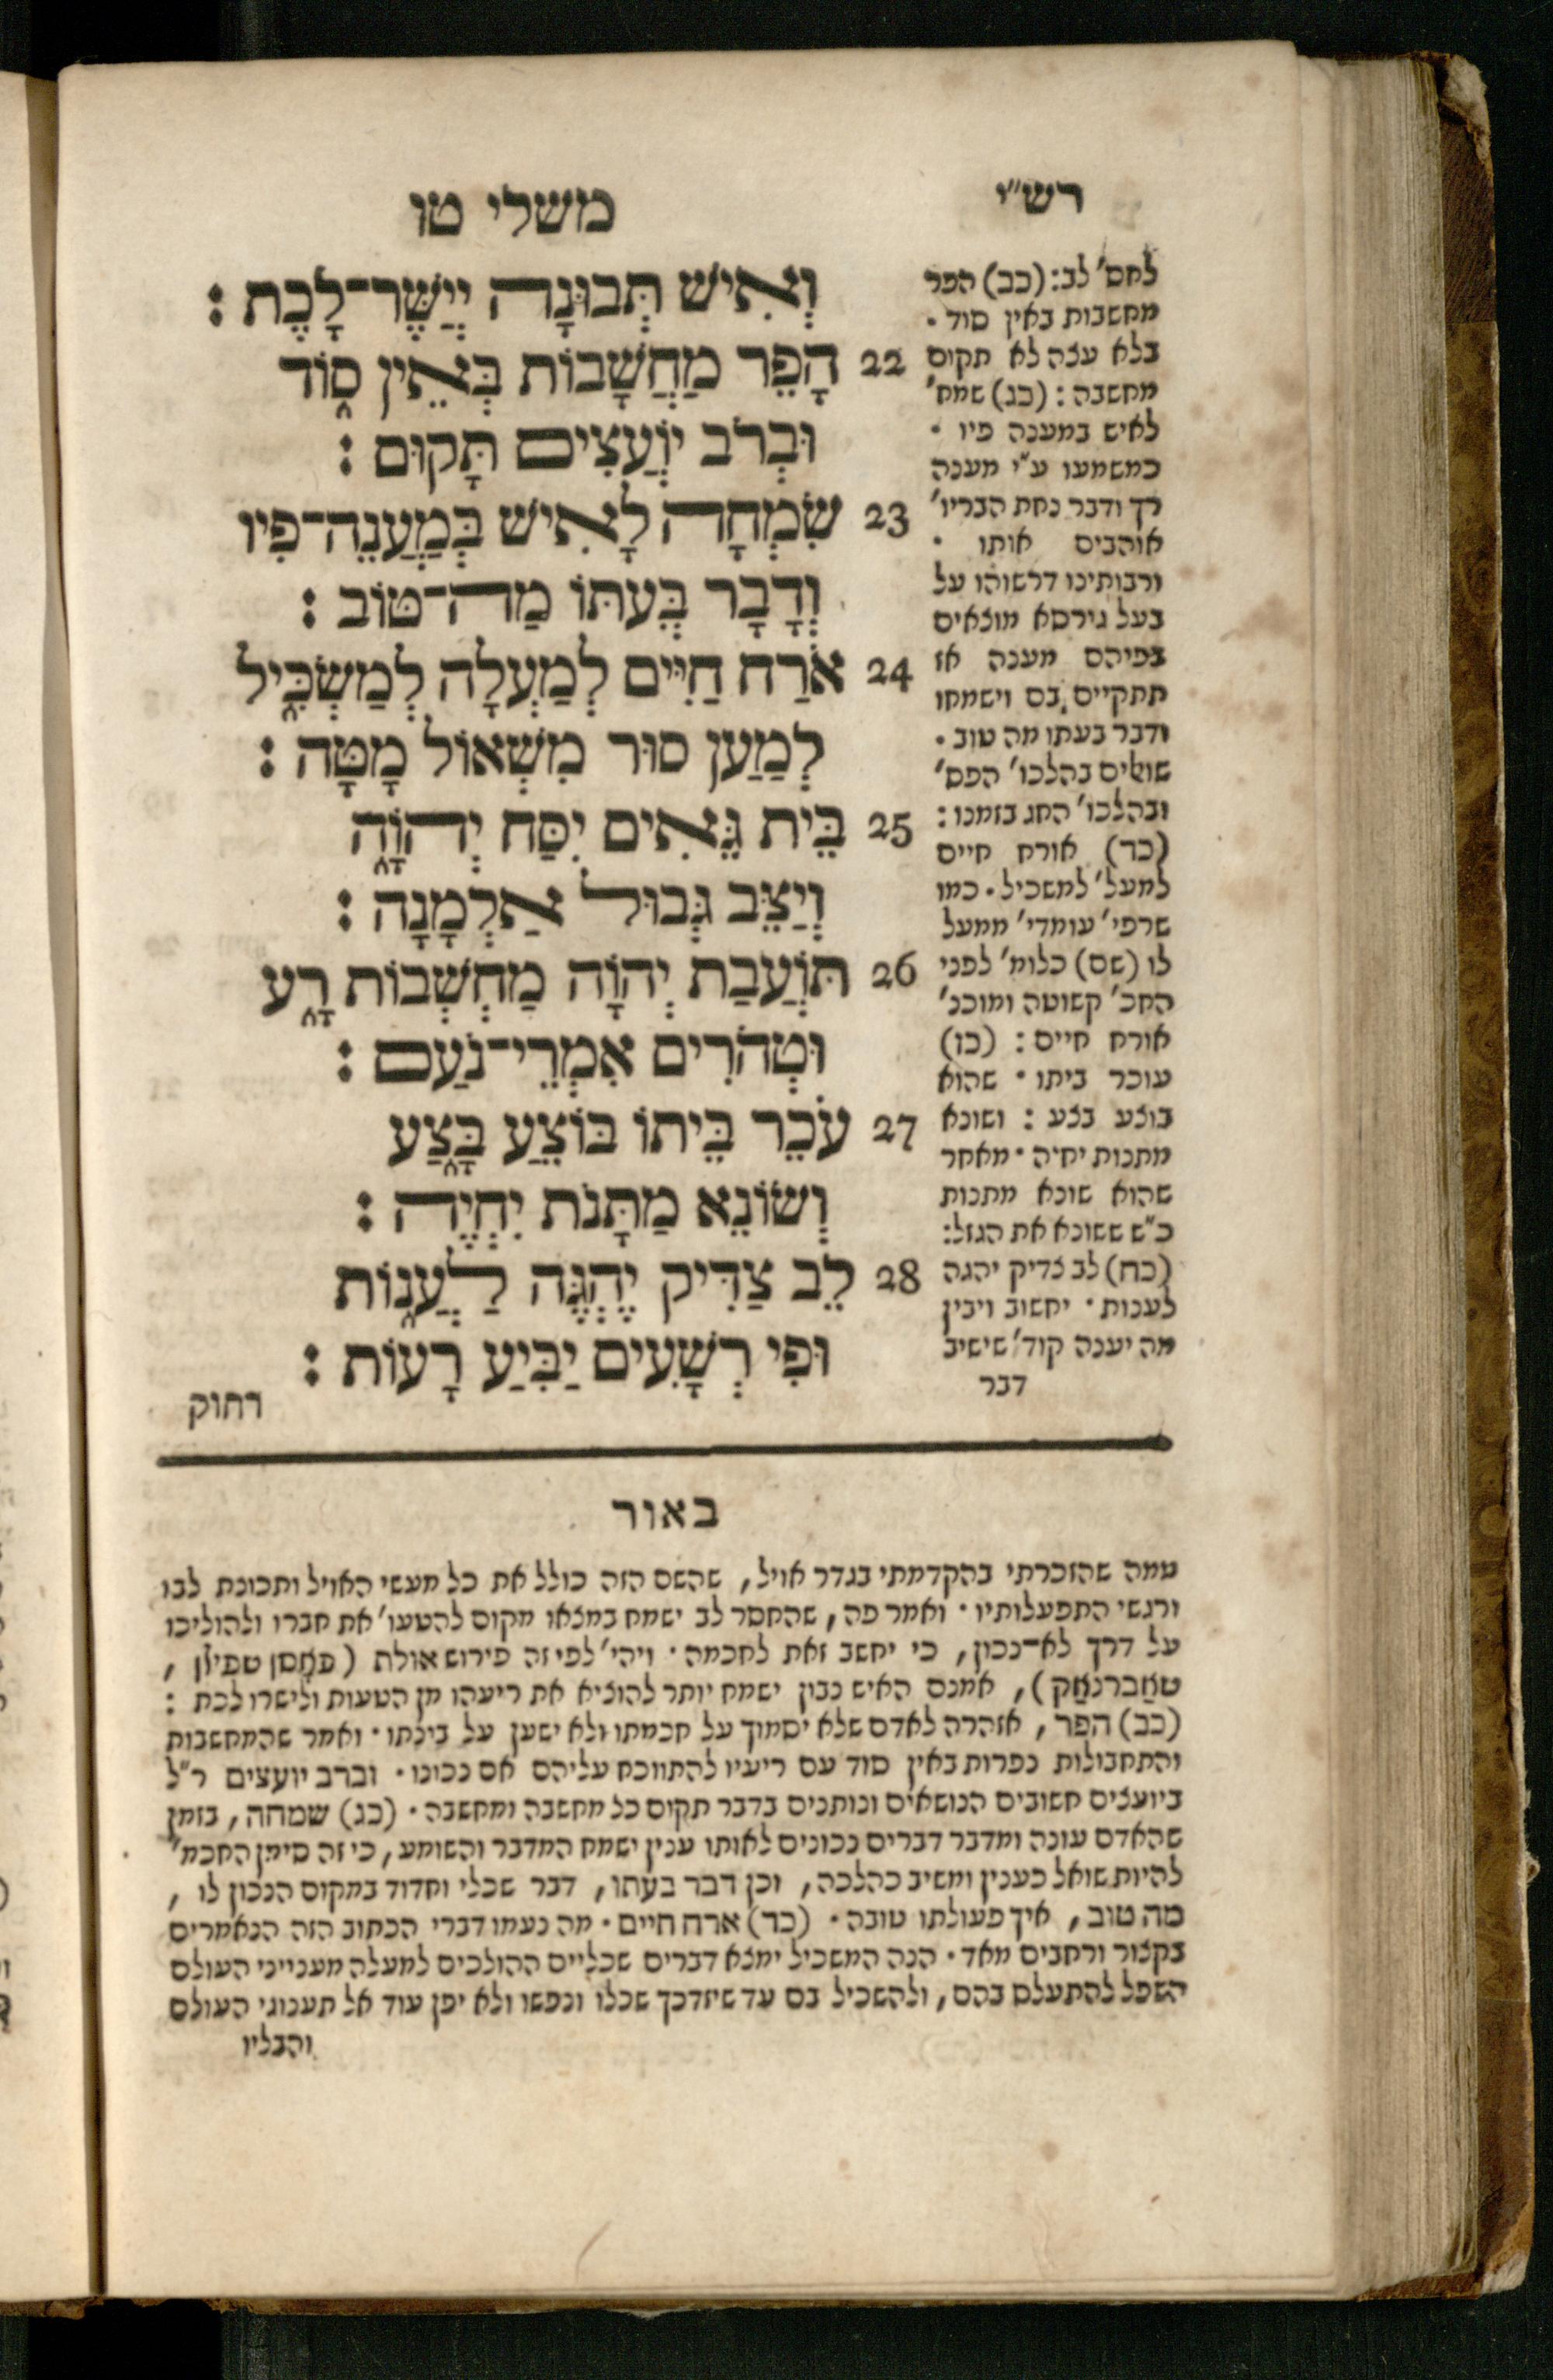 משלי טו
וְאִישׁ תְּבוּנָה יְיַשֶּׁר־לָכֶת :
22 הָפֵר מַחֲשָׁבוֹת בְּאֵין סוֹד
וּבְרֹב יוֹעֲצִים תָּקוּם :
23 שִׂמְחָה לָאִישׁ בְּמַעֲנֵה־פִיו
וְדָבָר בְּעִתּוֹ מַה־טּוֹב :
24 אֹרַח חַיִּים לְמַעְלָה לְמַשְׂכִּיל
לְמַעַן סוּר מִשְׁאוֹל מָטָּה :
25 בֵּית גֵּאִים יִסַּח יְהוָֹה
וְיַצֵּב גְּבוּל אַלְמָנָה :
26 תּוֹעֲבַת יְהוָֹה מַחְשְׁבוֹת רָע
וּטְהֹרִים אִמְרֵי־נֹעַם :
27 עֹכֵר בֵּיתוֹ בּוֹצֵעַ בָּצַע
וְשׂוֹנֵא מַתָּנֹת יִחְיֶה :
28 לֵב צַדִּיק יֶהְגֶּה לַעֲנוֹת
וּפִי רְשָׁעִים יַבִּיעַ רָעוֹת :
רחוק
רש״י
לחס׳ לב: (כב) הפר
מחשבות באין סוד ·
בלא עצה לא תקום
מחשבה : (כג) שמח׳
לאיש במענה פיו ·
כמשמעו ע״י מענה
רך ודבר נחת הבריו׳
אוהבים אותו ·
ורבותינו דרשוהו על
בעל גירסא מוצאים
בפיהם מענה אז
תתקיים בם וישמחו
ודבר בעתו מה טוב ·
שואלים בהלכו׳ הפס׳
ובהלכו׳ החג בזמנו :
(כד) אורח חיים
למעל׳ למשכיל · כמו
שרפי׳ עומדי׳ ממעל
לו (שם) כלומ׳ לפני
החכ׳ קשוטה ומוכנ׳
אורח חיים : (כז)
עוכר ביתו · שהוא
בוצע בצע : ושונא
מתנות יחיה · מאחר
שהוא שונא מתנות
כ״ש ששונא את הגזל:
(כח) לב צדיק יהגה
לענות · יחשוב ויבין
מה יענה קוד׳ שישיב
דבר
באור
עמה שהזכרתי בהקדמתי בגדר אויל, שהשם הזה כולל את כל מעשי האויל ותכונת לבו
ורגשי התפעלותיו · ואמר פה, שהחסר לב ישמח במצאו מקום להטעו׳ את חברו ולהוליכו
על דרך לא־נכון, כי יחשב זאת לחכמה · ויהי׳ לפי זה פירוש אולת (
), אמנם האיש נבון ישמח יותר להוציא את ריעהו מן הטעות ולישרו לכת :
(כב) הפר, אזהרה לאדם שלא יסמוך על חכמתו ולא ישען על בינתו · ואמר שהמחשבות
והתחבולות נפרות באין סוד עם ריעיו להתווכח עליהם אם נכונו · וברב יועצים ר״ל
ביועצים חשובים הנושאים ונותנים בדבר תקום כל מחשבה ומחשבה · (כג) שמחה, בזמן
שהאדם עונה ומדבר דברים נכונים לאותו ענין ישמח המדבר והשומע, כי זה סימן החכמ׳
להיות שואל כענין ומשיב כהלכה, וכן דבר בעתו, דבר שכלי וחדוד במקום הנכון לו,
מה טוב, איך פעולתו טובה · (כד) ארח חיים · מה נעמו דברי הכתוב הזה הנאמרים
בקצור ורחבים מאד · הנה המשכיל ימצא דברים שכליים ההולכים למעלה מענייני העולם
השפל להתעלם בהם, ולהשכיל בם עד שיזדכך שכלו ונפשו ולא יפן עוד אל תענוגי העולם
והבליו